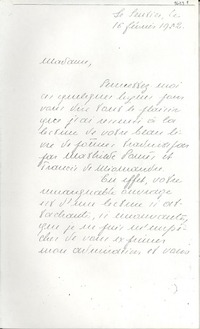 Le
16 février 19
Madame,
Permettez moi
en quelques lignes pour
vous dire tout le plaisir
que j'ai ressenti à la
lecture de votre beau li-
vre de poèmes traduction
par Mathilde Pomès et
Francis de Miomandre.
En effet, votre
remarquable ouvrage
est d'une lecture si at-
tachante, si
que je ne puis m'empê-
cher de vous exprimer
mon admiration et vous